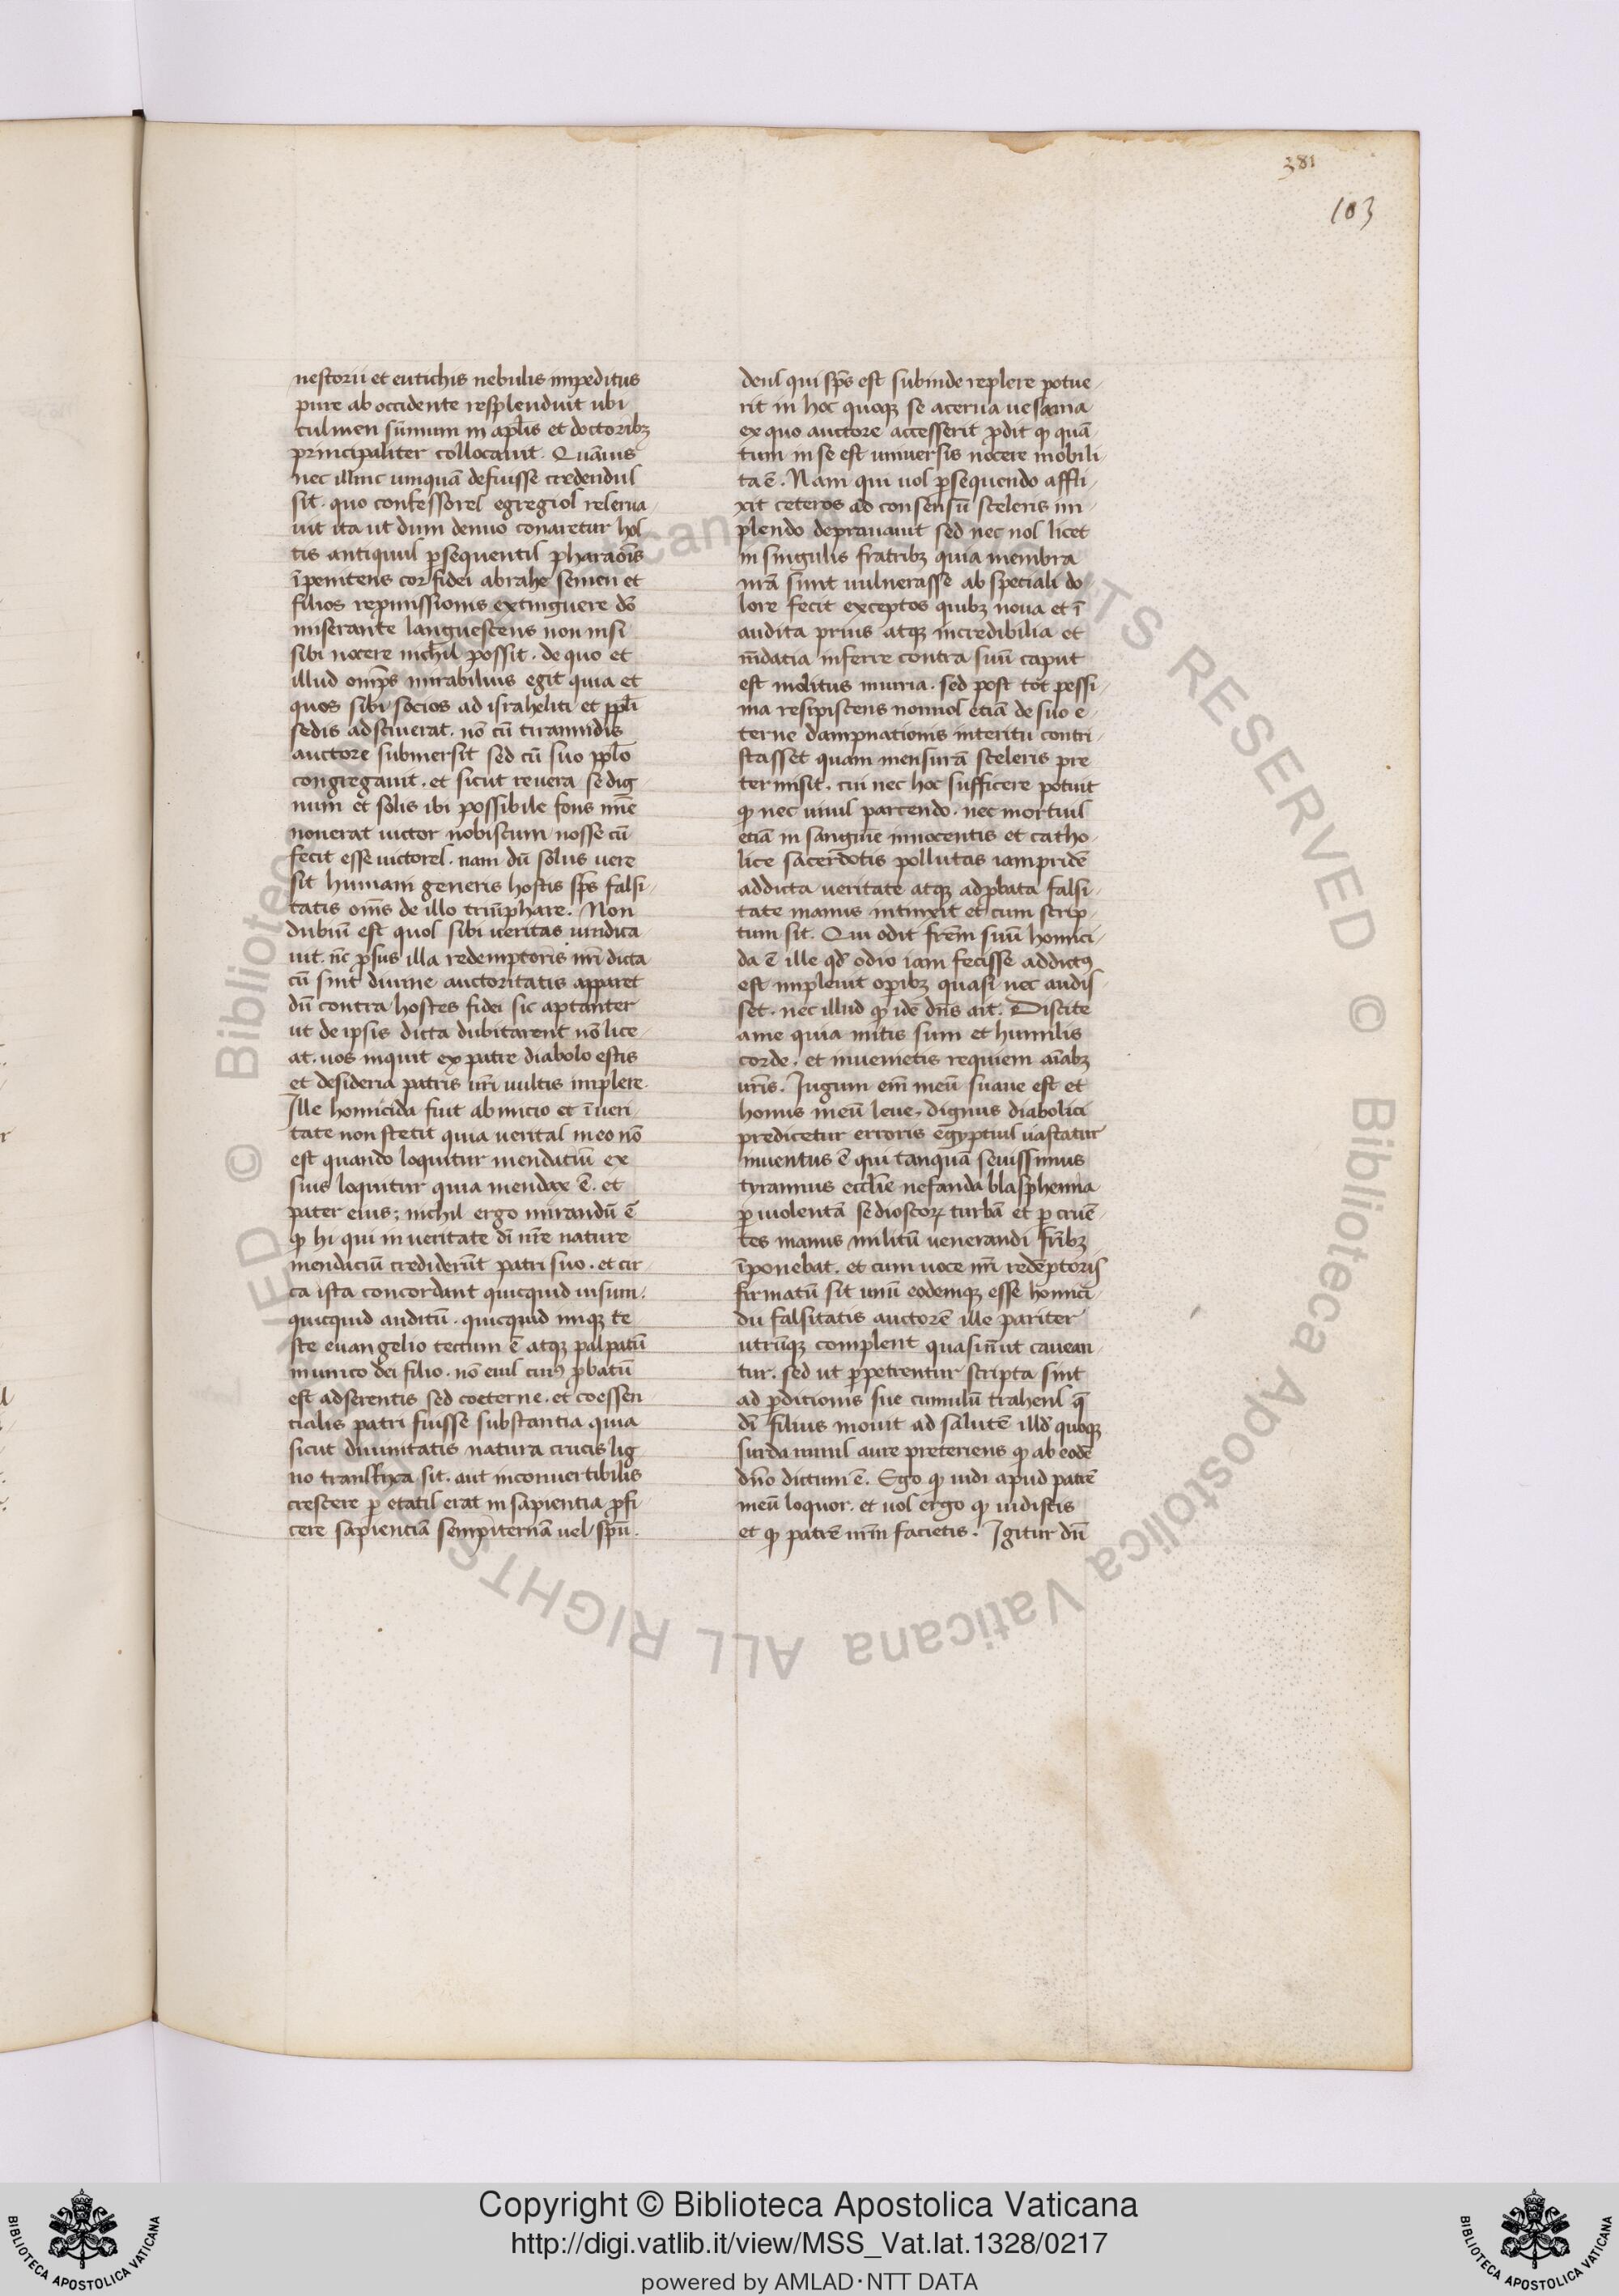 381
103
nestorii et eutichis nebulis impeditus
pure ab occidente resplenduit ubi
culmen sūmum in aplis et doctoribꝫ
principaliter collocauit. Quāuis
nec illinc umquā defuisse credendus
sit. quo confessores egregios reserua
uit ita ut dum denuo conaretur hos
tis antiquus ꝑsequentis pharaōis
īpenitens cor fidei abrahe semen et
filios repmissionis extinguere dō
miserante languescens non nisi
sibi nocere nichil possit. de quo et
illud omps mirabilius egit quia et
quos sibi socios ad israheliti et ppli
sedis adsciuerat. nō cū tirannidis
auctore submersit sed cū suo pplo
congregauit. et sicut reuera se dig
num et solis ibi possibile fons mīe
nouerat uictor nobiscum nosse cū
fecit esse uictores. nam dū solus uere
sit humani generis hostis sps falsi
tatis oms de illo triūphare. Non
dubiū est quos sibi ueritas uindica
uit. nc̄ ꝓsus illa redemptoris nri dicta
cū sint diuine auctoritatis apparet
dū contra hostes fidei sic aptanter
ut de ipsis dicta dubitarent nō lice
at. uos inquit ex patre diabolo estis
et desideria patris uri uultis implere.
Ille homicida fuit ab inicio et ī ueri
tate non stetit quia ueritas in eo nō
est quando loquitur mendaciū ex
suis loquitur quia mendax ē. et
pater eius; nichil ergo mirandū ē
ꝙ hi qui in ueritate dī nre nature
mendaciū crediderūt patri suo. et cir
ca ista concordant quicquid uisum.
quicquid auditū. quicquid niqꝫ te
ste euangelio tectum ē atqꝫ palpatū
in unico dei filio. nō eius cuiꝰ ꝓbatū
est adserentis sed coeterne. et coessen
cialis patri fuisse substantia quia
sicut diuinitatis natura crucis lig
no transfixa sit. aut inconuertibilis
crescere ꝑ etatis erat in sapientia ꝓfi
cere sapientiā sempiternā uel spū.
deus qui sps est subinde replere potue
rit in hoc quoqꝫ se acerua uesania
ex quo auctore accesserit ꝓdit ꝙ quā
tum in se est uniuersis nocere mobili
ta ē. Nam qui uos ꝑsequendo affli
xit ceteros ad consensū sceleris im
plendo deprauauit sed nec nos licet
in singulis fratribꝫ quia membra
nrā sunt uulnerasse ab speciali do
lore fecit exceptos quibꝫ noua et ī
audita prius atqꝫ incredibilia et
mdatia inferre contra suū caput
est molitus iniuria. sed post tot pessi
ma resipiscens nonuol etiā de suo e
terne dampnationis interitu contri
stasset quam mensurā sceleris pre
termisit. cui nec hoc sufficere potuit
ꝙ nec uiuis parcendo. nec mortuis
etiā in sanguine innocentis et catho
lice sacerdotis pollutas iampridē
addicta ueritate atqꝫ adꝓbata falsi
tate manus intinxit et cum scrip
tum sit. Qui odit frem suū homici
da ē ille qd odio iam fecisse addictꝰ
est impleuit oꝑibꝫ quasi nec audis
set. nec illud ꝙ idē dns ait. Discite
ame quia mitis sum et humilis
corde. et inuenietis requiem aiabꝫ
uris. Iugum em meū suaue est et
honus meū leue. dignus diabolici
predicetur erroris egyptius uastatur
inuentus ē qui tanquā seuissimus
tyrannus ecclie nefanda blasphemia
ꝑ uiolentā se dioscoꝝ turbā et ꝑ cruē
tes manus militū uenerandi fribꝫ
īponebat. et cum uoce nri redēptoris
firmatū sit unū eodemqꝫ esse homici
du falsitatis auctorē ille pariter
utrūqꝫ complent quasi n̄ ut cauean
tur. sed ut ꝑpetrentur scripta sint
ad ꝑditionis sue cumulū trahens q̄
dī filius monit ad salutē illd quoqꝫ
surda nimis aure preteriens ꝙ ab eodē
dno dictum ē. Ego ꝙ uidi apud patrē
meū loquor. et uos ergo ꝙ uidistis
et ꝙ patrē urm facietis. Igitur dū
Copyright © Biblioteca Apostolica Vaticana
http://digi.vatlib.it/view/MSS_Vat.lat.1328/0217
powered by AMLAD·NTT DATA
BIBLIOTECA APOSTOLICA VATICANA
BIBLIOTECA APOSTOLICA VATICANA
© Biblioteca Apostolica Vaticana ALL RIGHTS RESERVED